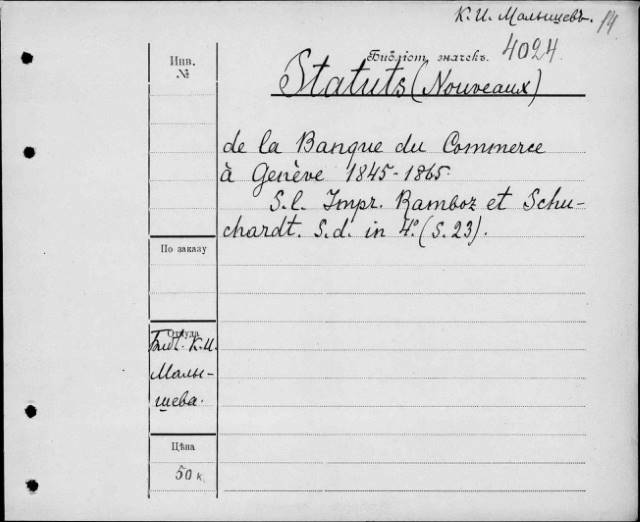 К. И. Малышевъ. 14
Инв.
№
Библіот. значекъ.
4024
Statuts (Nouveaux)
de la Banque du Commerce
à Genève 1845-1865
S.l. Impr. Ramboz et Schu-
chardt. S.d. in 4º. (S. 23).
По заказу
Откуда
Библ. К.И.
Малы-
шева.
Цѣна
50 к.